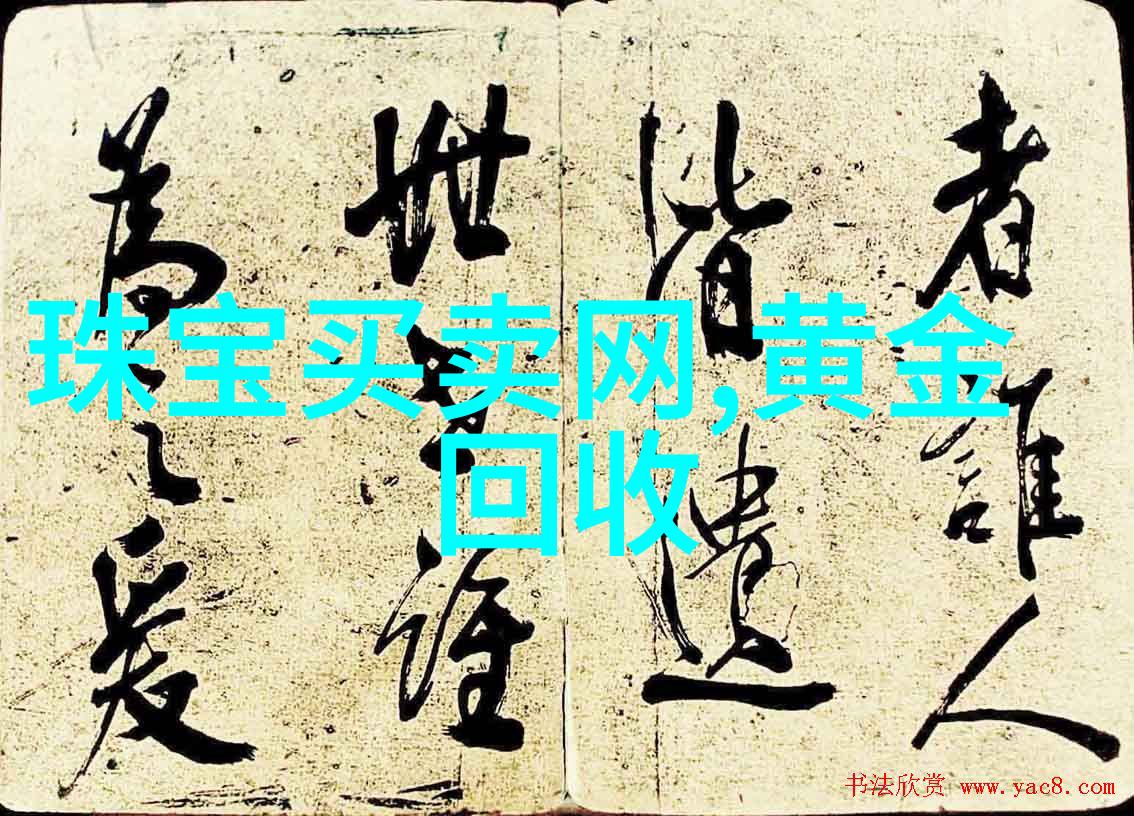 者誰人
皆遺
世誰
為之爰
珠宝买卖网,黄金
回收
书法欣赏 www.yac8.com